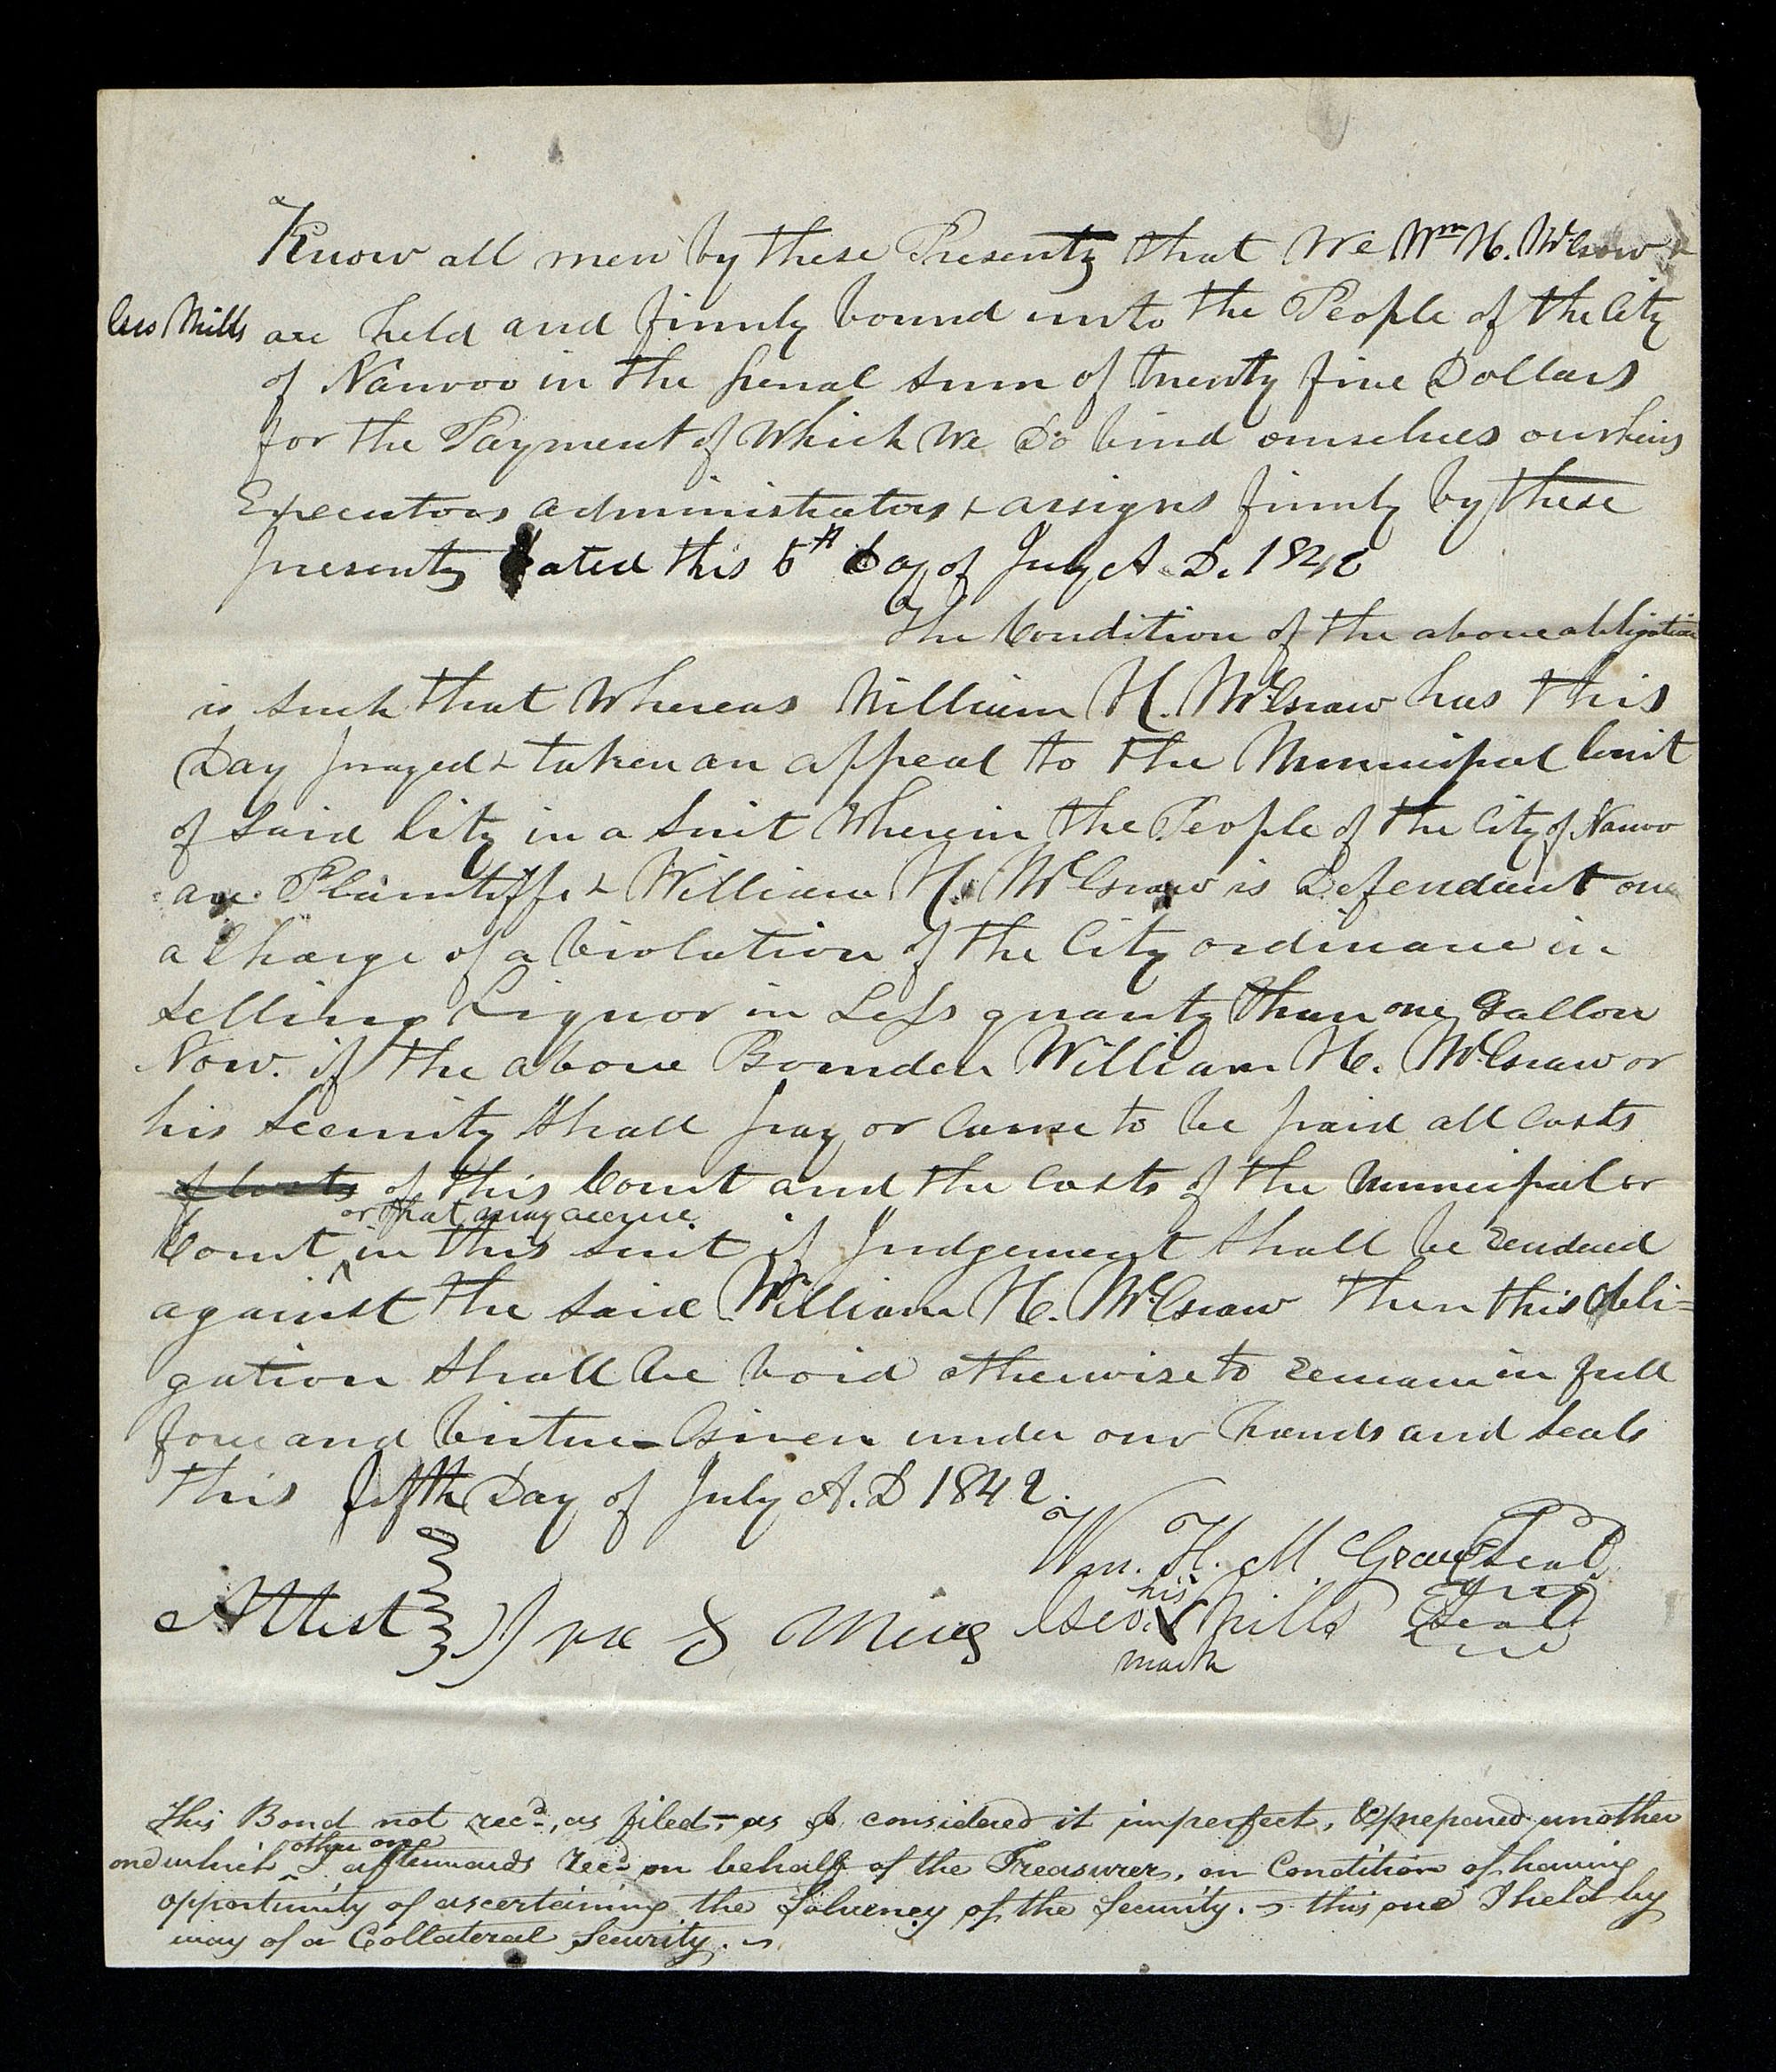 Know all men by these Presents that We Wm H. McGraw &
Geo Mills are held and firmly bound unto the People of the City
of Nauvoo in the penal Sum of twenty five Dollars
for the Payment of Which We Do bind ourselves our heirs
Executors administrators & assigns firmly by these
presents Dated this 5th Day of July A. D. 1842
The Condition of the above obligation
is Such that Whereas William H. McGraw has this
Day prayed & taken an appeal to the Municipal Court
of Said City in a Suit Wherein the People of the City of Nauvoo
are Plaintiffs & William H. McGraw is Defendant on
a Charge of a Violation of the City ordinance in
Selling Liquor in Less quanty than one Gallon
Now. if the above Bounden William H. McGraw or
his Security Shall pay or Cause to be paid all Costs
of Costs of this Court and the Costs of the Municipal or
or that may accrue
Court ^ in this Suit if Judgement Shall be rendered
against the Said William H. McGraw then this obli=
gation Shall be Void otherwise to remain in full
force and Virtue - Given under our hands and Seals
this fifth Day of July A. D 1842.
Wm. H. McGraw Seal
his
Attest Geo. X Mills Seal
mark
This Bond not recd., as filed,- as I considered it imperfect, & prepared another
other one
one which ^ I afterwards recd on behalf of the Treasurer, on Condition of having
opportunity of ascertaining the Solvency of the Security. - this one I held by
way of a Collateral Security. -